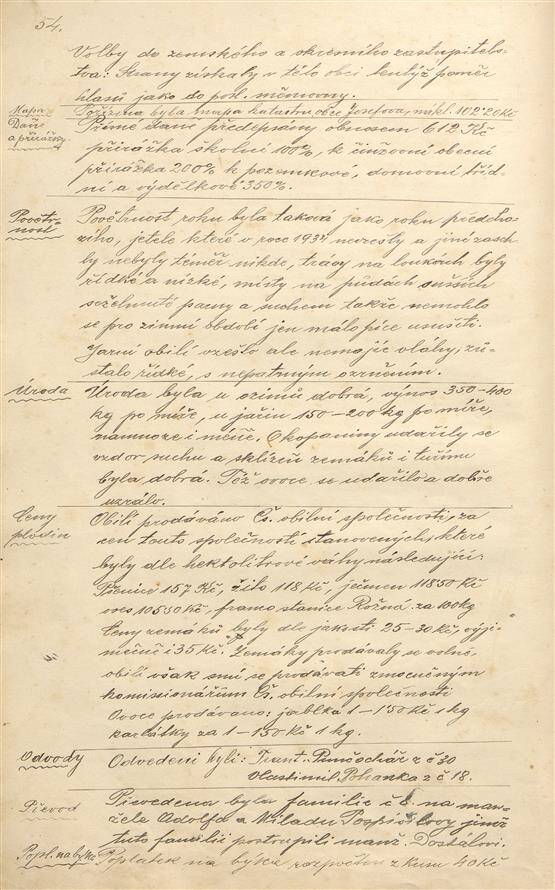 54.
Volby do zemského a okresního zastupitels-
tva: Strany získaly v této obci tentýž poměr
hlasů jako do posl. sněmovny.
Mapa
Pořízena byla mapa katastru obce Josefova, nákl. 102·20 Kč
Daně
a přirážky
Přímé daně předepsány obnosem 612 Kč
přirážka školní 100%, k činžovní obecní
přirážka 200% k pozemkové, domovní tříd-
ní a výdělkové 350%.
Povětr-
nost
Povětrnost roku byla taková jako roku předcho-
zího, jetele které v roce 1934 nevzešly a jiné zasch-
ly nebyly téměř nikde, trávy na loukách byly
řídké a nízké, místy na půdách sušších
sežehnuté suchem takže nemohlo
se pro zimní období jen málo píce usušiti.
Jarní obilí vzešlo ale nemajíc vláhy, zů-
stalo řídké, s nepatrným
Úroda
Úroda byla u ozimů dobrá, výnos 350–400
kg po míře, u jařin 150–200 kg po míře,
namnoze i méně. Okopaniny udařily se
vzdor suchu a sklizeň zemáků i tuřínu
byla dobrá. Též ovoce se udařilo a dobře
uzrálo.
Ceny
plodin
Obilí prodáváno Čs. obilní společnosti, za
cen touto společností stanovených, které
byly dle hektolitrové váhy následující:
Pšenice 157 Kč, žito 118 Kč, ječmen 118 50 Kč
oves 105 50 Kč, franko stanice Rožná za 100 kg
Ceny zemáků byly dle jakosti 25–30 Kč, výji-
mečně i 35 Kč. Zemáky prodávaly se volně,
obilí však smí se prodávati zmocněným
komisionářům Čs. obilní společnosti
Ovoce prodáváno: jablka 1–1 50 Kč 1 kg
karlátky za 1–1 50 Kč 1 kg.
Odvody
Odvedeni byli: Frant. Punčochář z č 30
Vlastimil Pohanka z č 18.
Převod
Převedena byla familie č 8. na man-
žele Adolfa a Miladu Pospíšilovy jimž
tuto familii postoupili manž. Dostálovi
Popl. na býka
Poplatek na býka rozpočten z kusu 40 Kč